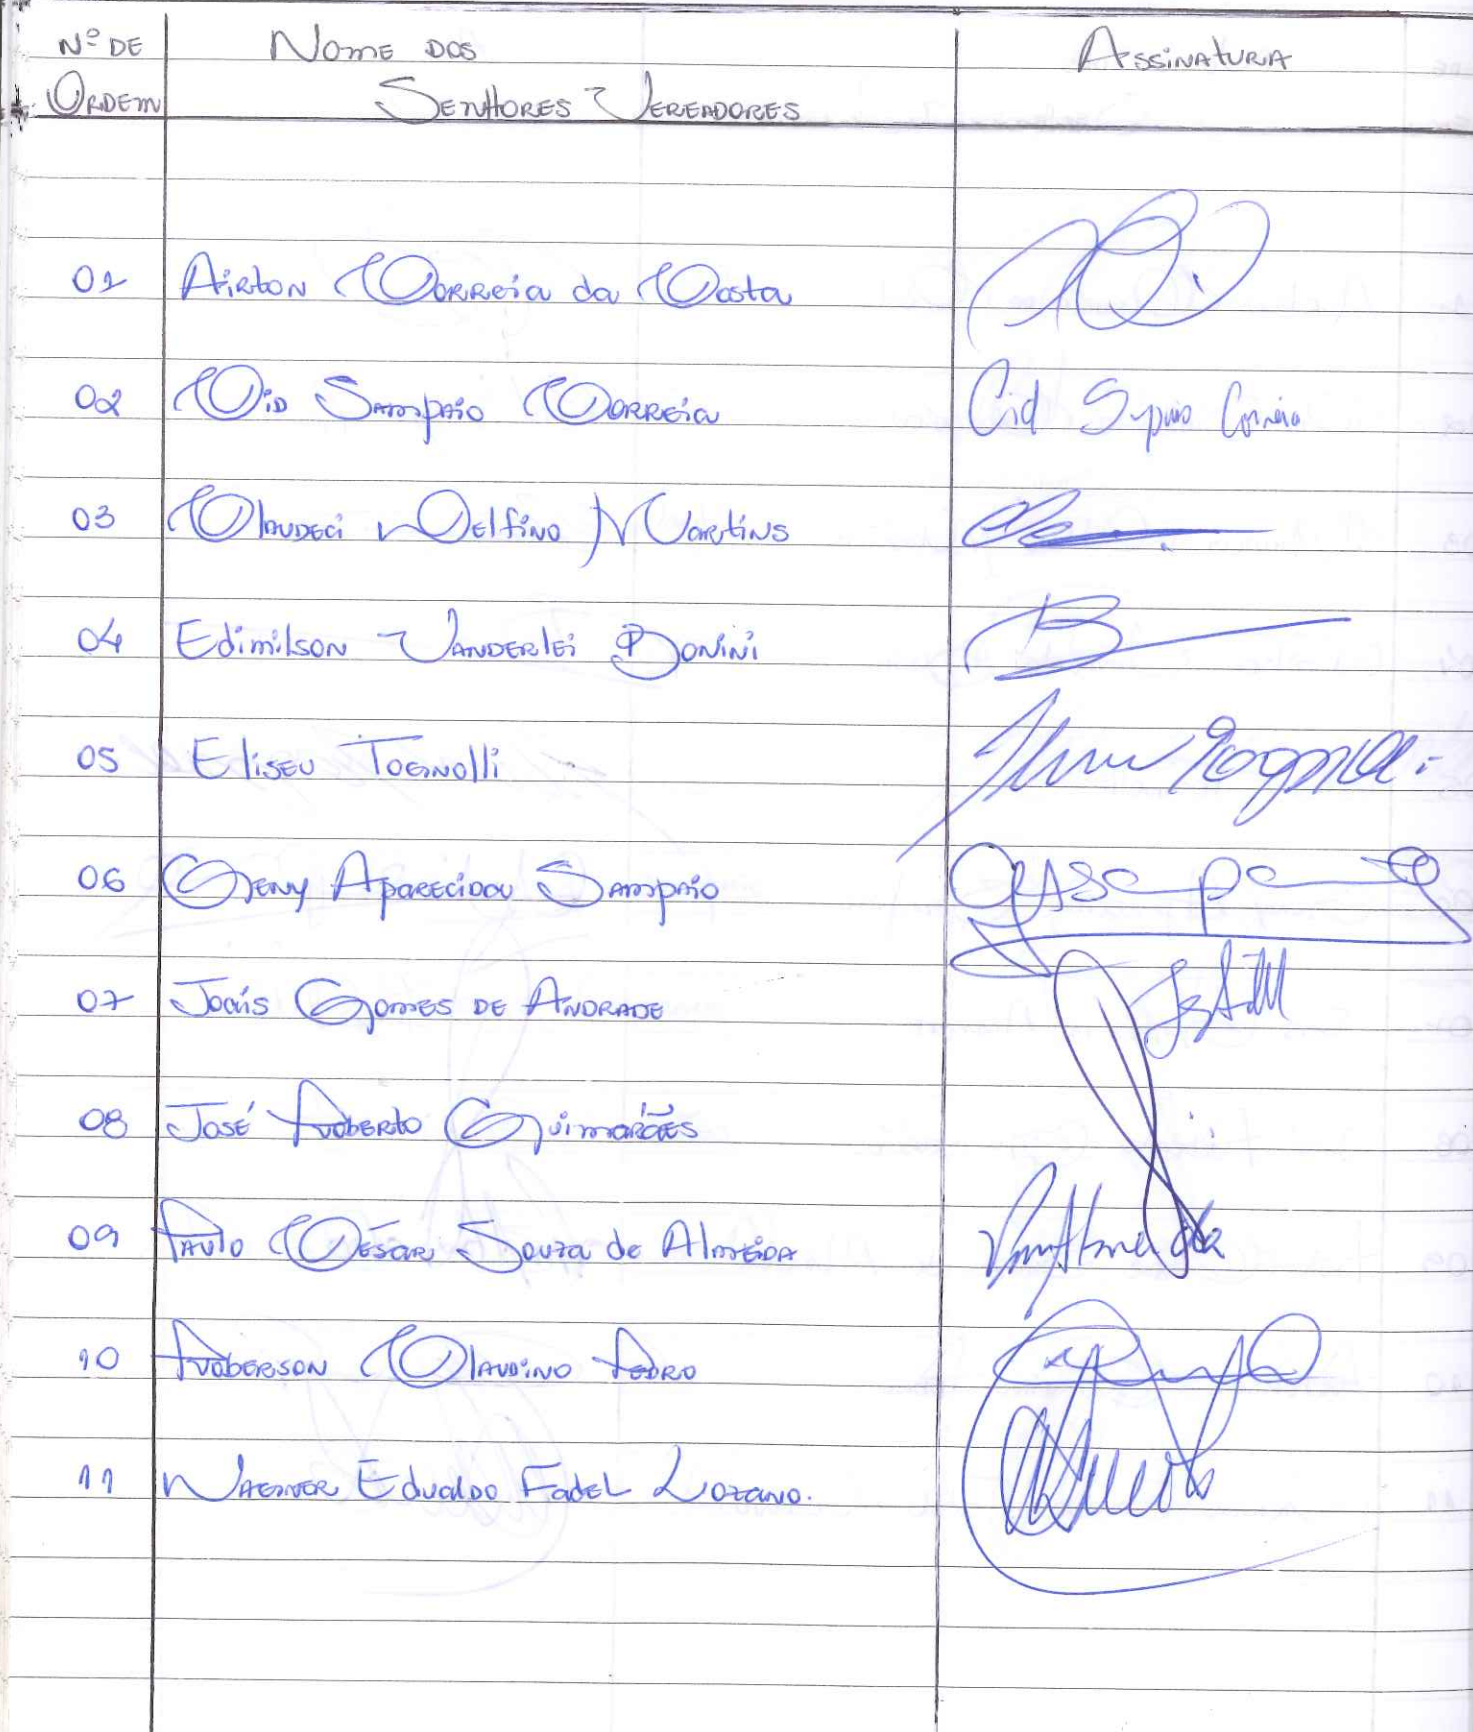 Nº DE Nome dos Assinatura
Ordem Senhores Vereadores
01 Airton Correia da Costa
02 Cid Sampaio Correia Cid Sampaio Correia
03 Claudeci Delfino Martins
04 Edimilson Vanderlei Bonini
05 Eliseu Tognolli
06 Geny Aparecida Sampaio
07 Joais Gomes de Andrade
08 José Roberto Guimarães
09 Paulo César Souza de Almeida
10 Roberson Claudino Pedro
11 Wagner Edualdo Fadel Lozano.